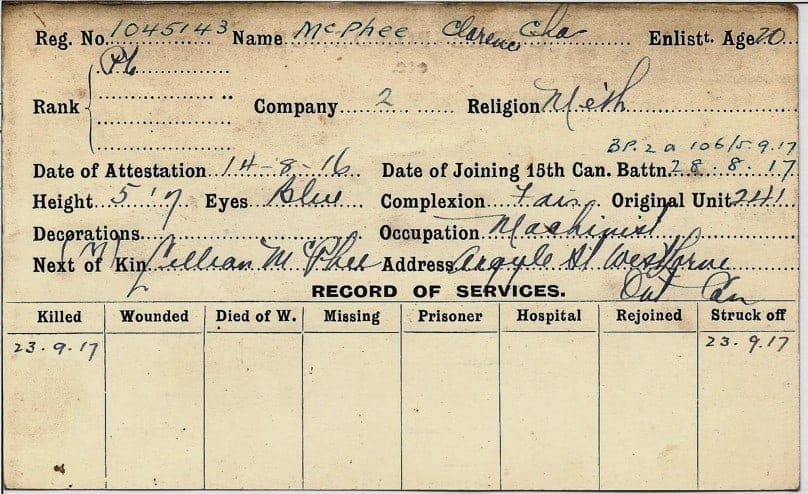 Reg. No. 1045143 Name McPhee Clarence Cha Enlistt. Age 20
Pte
Rank Company 2 Religion Meth
B.P. 2 a 106/5.9.17
Date of Attestation 14-8-16 Date of Joining 15th Can. Battn. 28.8.17
Height 5'7 Eyes Blue Complexion Fair Original Unit 241
Decorations Occupation Machinist
Next of Kin (M) Lillian McPhee Address Argyle St Westhorne
Ont Can
RECORD OF SERVICES.
Killed Wounded Died of W. Missing Prisoner Hospital Rejoined Struck off
23.9.17 23.9.17